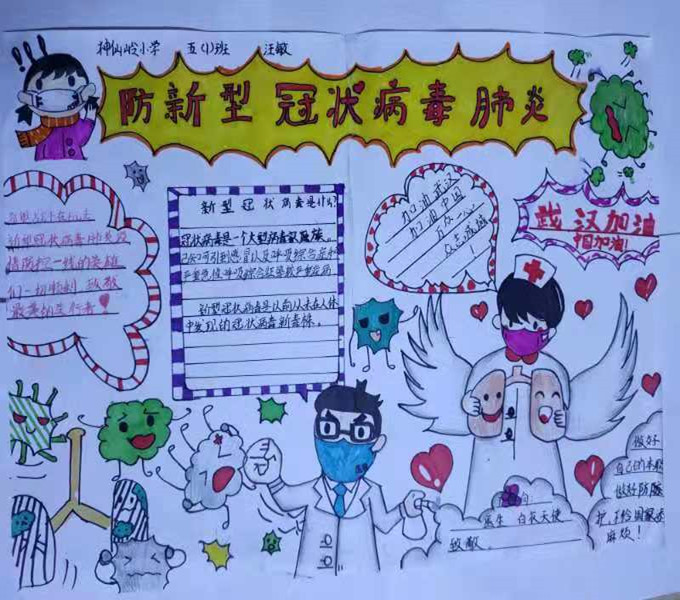 神仙岭小学 五(1)班 汪敏
防新型冠状病毒肺炎
新型冠状病毒肺炎疫
情战斗一线的英雄
们一切顺利 致敬
最美的逆行者
新型冠状病毒是什么?
冠状病毒是一个大型病毒家族。
已知可引到感冒以及呼吸综合症和
严重急性呼吸综合征等较严重疾病
新型冠状病毒是以前从未在人体
中发现的冠状病毒新毒株。
加油武汉
加油中国
万众一心
众志成城
!
武汉加油
中国加油!
冠
医生 白衣天使
致敬
做好
自己的
做好防
护,不给国家添
麻烦!